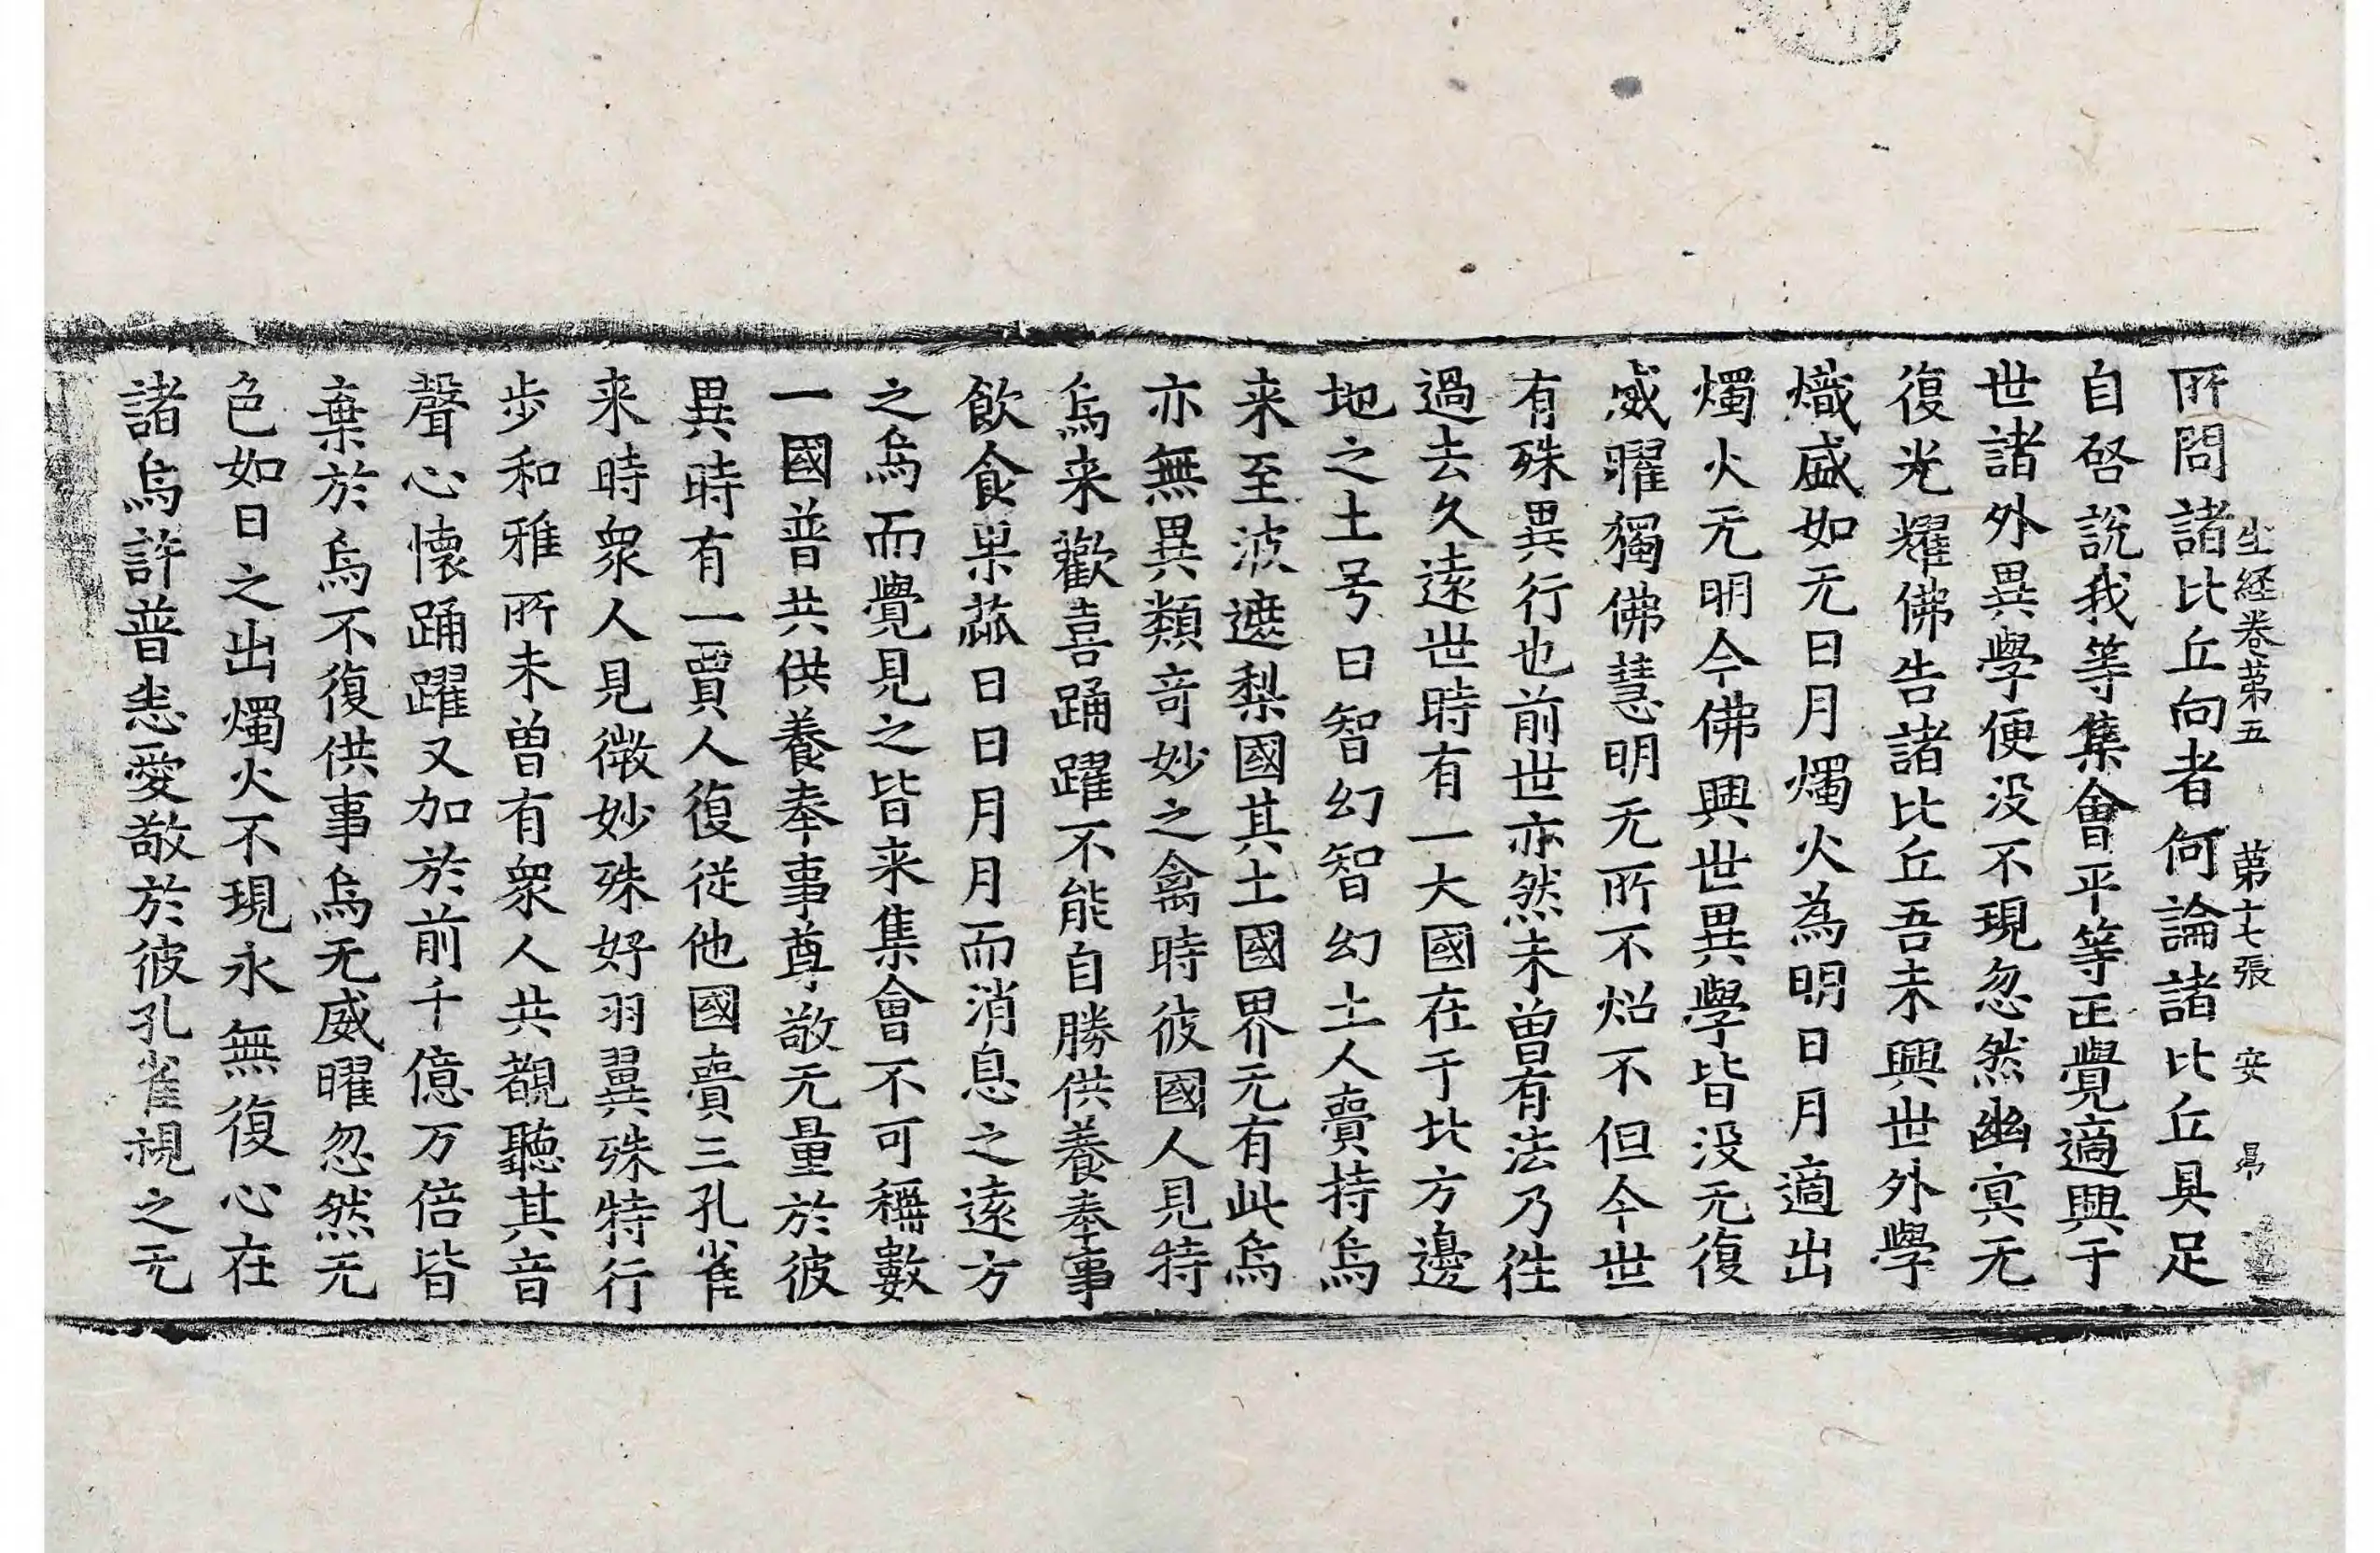 生経卷第五 第十七張 安 昺
所問諸比丘向者何論諸比丘具足
自啓說我等集會平等正覺適興于
世諸外異學便没不現忽然幽冥无
復光耀佛告諸比丘吾未興世外學
熾盛如无日月燭火為明日月適出
燭火无明今佛興世異學皆没无復
威曜獨佛慧明无所不炤不但今世
有殊異行也前世亦然未曽有法乃徃
過去久遠世時有一大國在于北方邊
地之土号曰智幻智幻土人賣持烏
来至波遮梨國其土國界无有此烏
亦無異類竒妙之禽時彼國人見特
烏来歡喜踊躍不能自勝供養奉事
飲食果蓏日日月月而消息之遠方
之烏而覺見之皆来集會不可稱數
一國普共供養奉事尊敬无量於彼
異時有一賈人復從他國賣三孔雀
来時衆人見微妙殊好羽翼殊特行
步和雅所未曽有衆人共觀聽其音
聲心懷踊躍又加於前千億万倍皆
棄於烏不復供事烏无威曜忽然无
色如日之出燭火不現永無復心在
諸烏許普悉愛敬於彼孔雀視之无